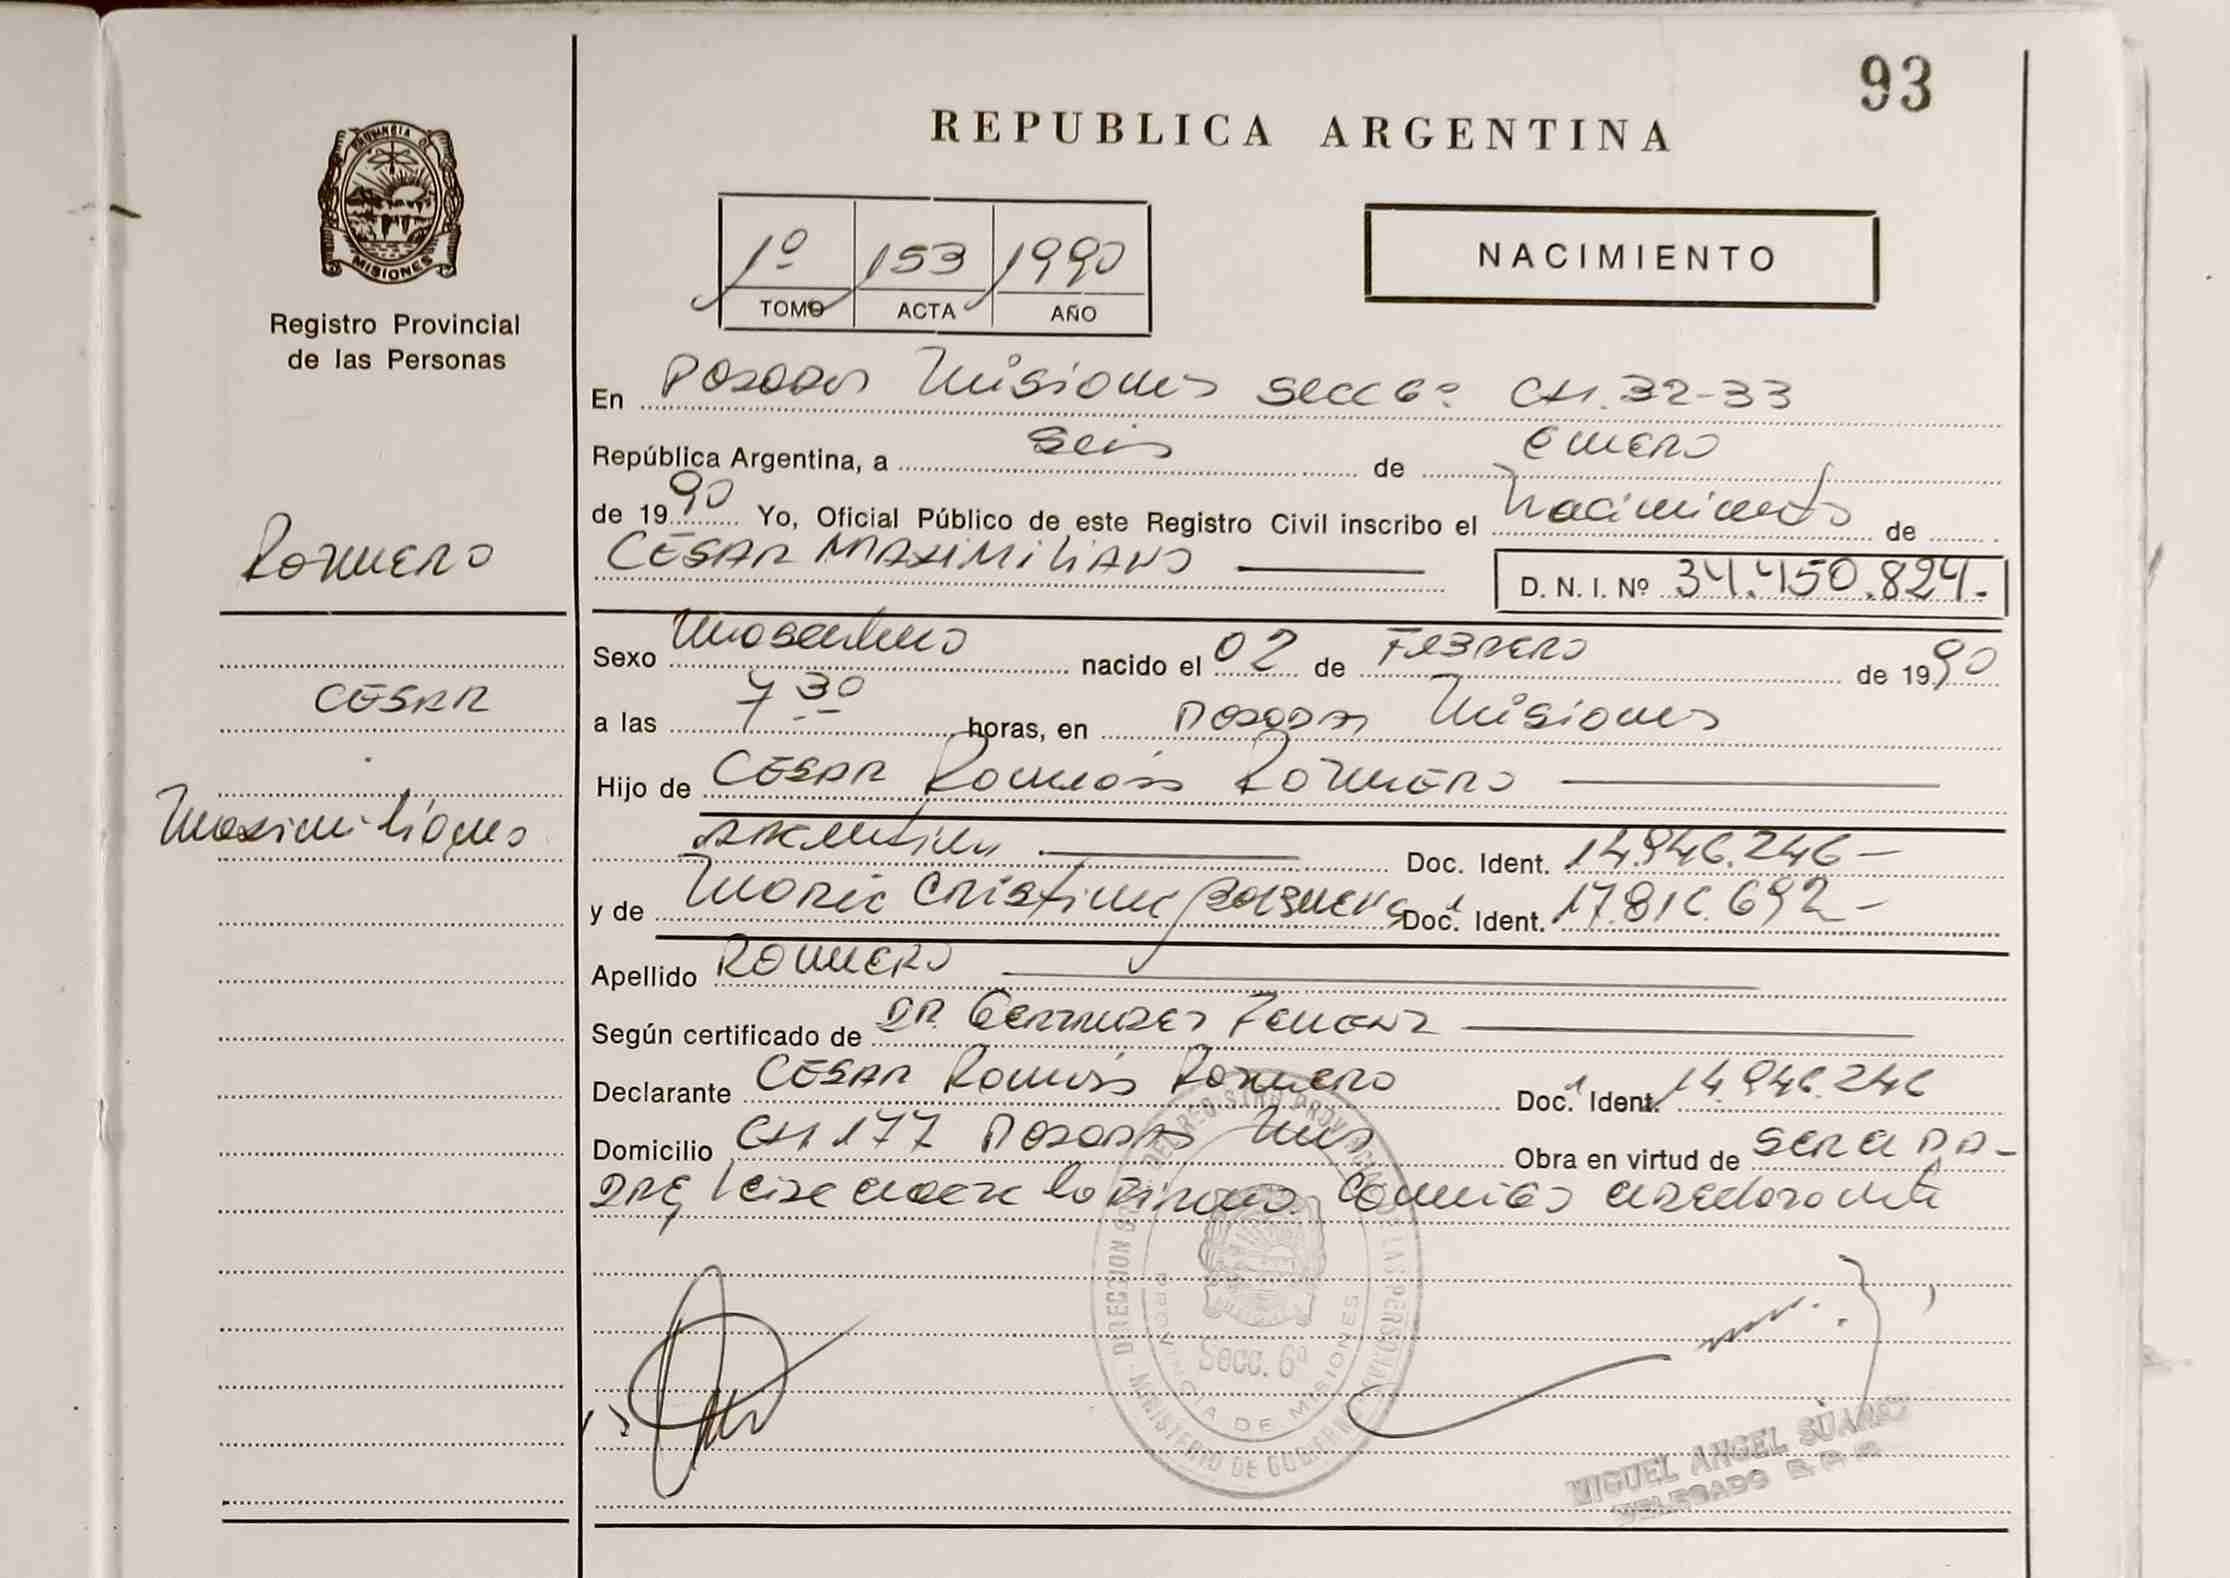 93
REPUBLICA ARGENTINA
PROVINCIA DE
MISIONES
Registro Provincial
de las Personas
1º 153 1990
TOMO ACTA AÑO
NACIMIENTO
En Posadas Misiones Secc 6º CH. 32-33
República Argentina, a seis de enero
de 1990 Yo, Oficial Público de este Registro Civil inscribo el Nacimiento de
CÉSAR MAXIMILIANO
D. N. I. Nº 34.450.824.-
Romero
César
Maximiliano
Sexo Masculino nacido el 02 de FEBRERO de 1990
a las 7 30 horas, en Posadas Misiones
Hijo de CESAR Ramón Romero
Argentino Doc. Ident. 14.946.246-
y de Maria Cristina Doc. Ident. 17.816.692-
Apellido ROMERO
Según certificado de DR.
Declarante CESAR Ramón Romero Doc. Ident. 14.946.246
Domicilio CH 177 Posadas Mnes Obra en virtud de ser el PA-
DRE
DIRECCION GRAL. DEL REGISTRO PROVINCIAL DE LAS PERSONAS
MINISTERIO DE GOBIERNO
PROVINCIA DE MISIONES
Secc. 6º
MIGUEL ANGEL SUAREZ
DELEGADO